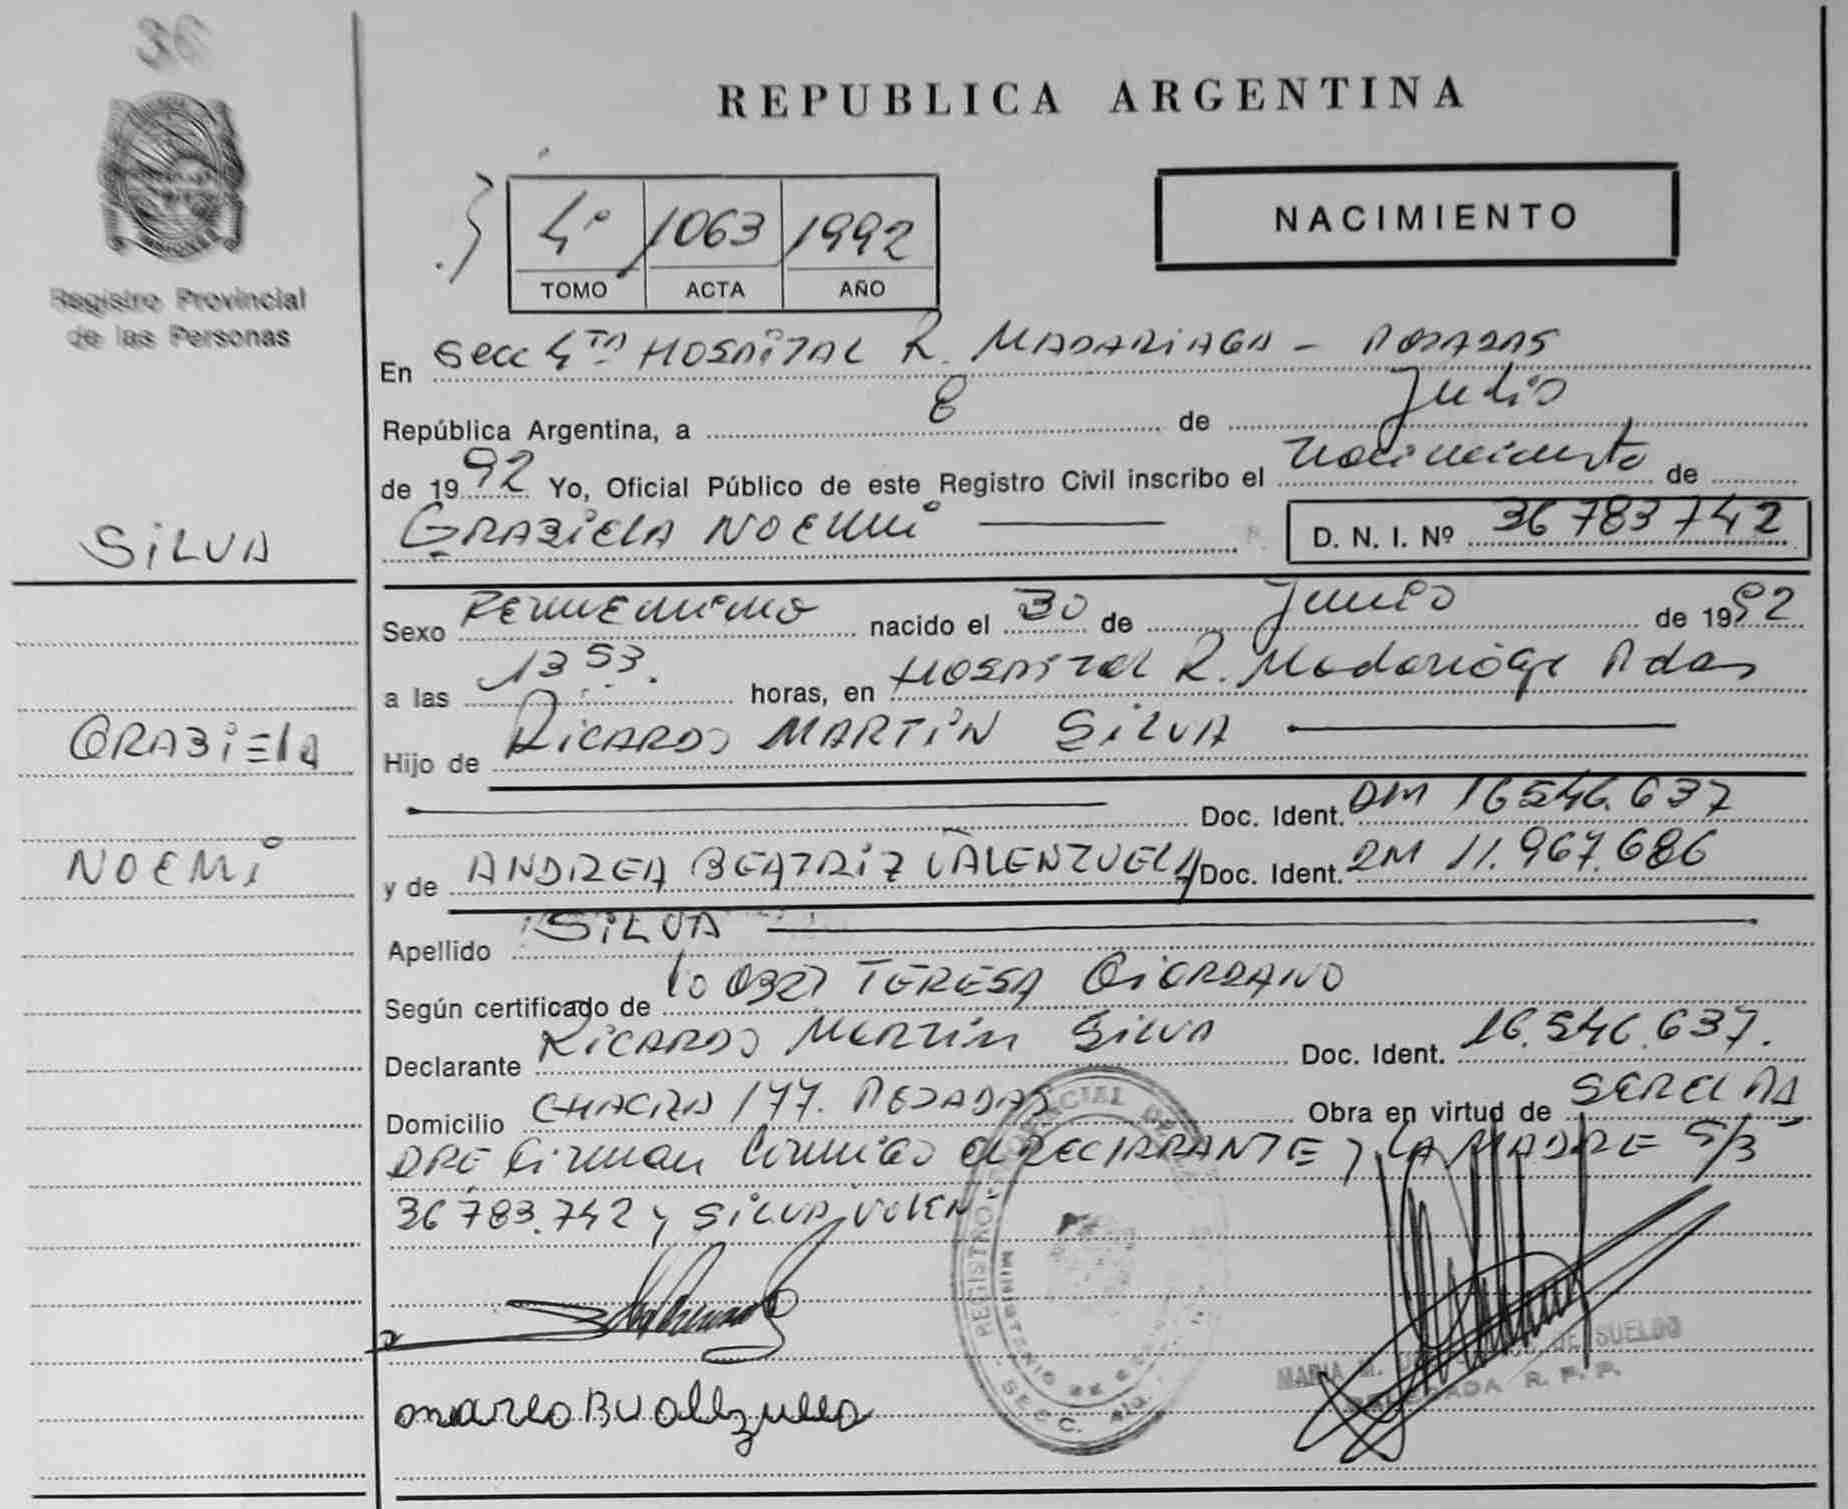 36
REPUBLICA ARGENTINA
4º 1063 1992
TOMO ACTA AÑO
NACIMIENTO
Registro Provincial
de las Personas
En Secc 4ta HOSPITAL R. MADARIAGA - POSADAS
República Argentina, a 8 de Julio
de 1992 Yo, Oficial Público de este Registro Civil inscribo el nacimiento de
GRAZIELA NOEMI D. N. I. Nº 36783742
SILVA
Sexo Femenino nacido el 30 de Junio de 1992
a las 13 53. horas, en HOSPITAL R. Madariaga Pdas
GRAZIELA
Hijo de RICARDO MARTIN SILVA
Doc. Ident. DM 16546.637
NOEMI
y de ANDREA BEATRIZ VALENZUELA Doc. Ident. DM 11.967.686
Apellido SILVA
Según certificado de TERESA GIORDANO
Declarante RICARDO MARTIN SILVA Doc. Ident. 16.546.637.
Domicilio CHACRA 177. POSADAS Obra en virtud de SER EL PA
DRE firman conmigo el DECLARANTE y LA MADRE S/B
36783.742 y SILVA
REGISTRO PROVINCIAL
MINISTERIO DE
SECC. 4ta.
MARIA M. DE SUELDO
DELEGADA R. P. P.